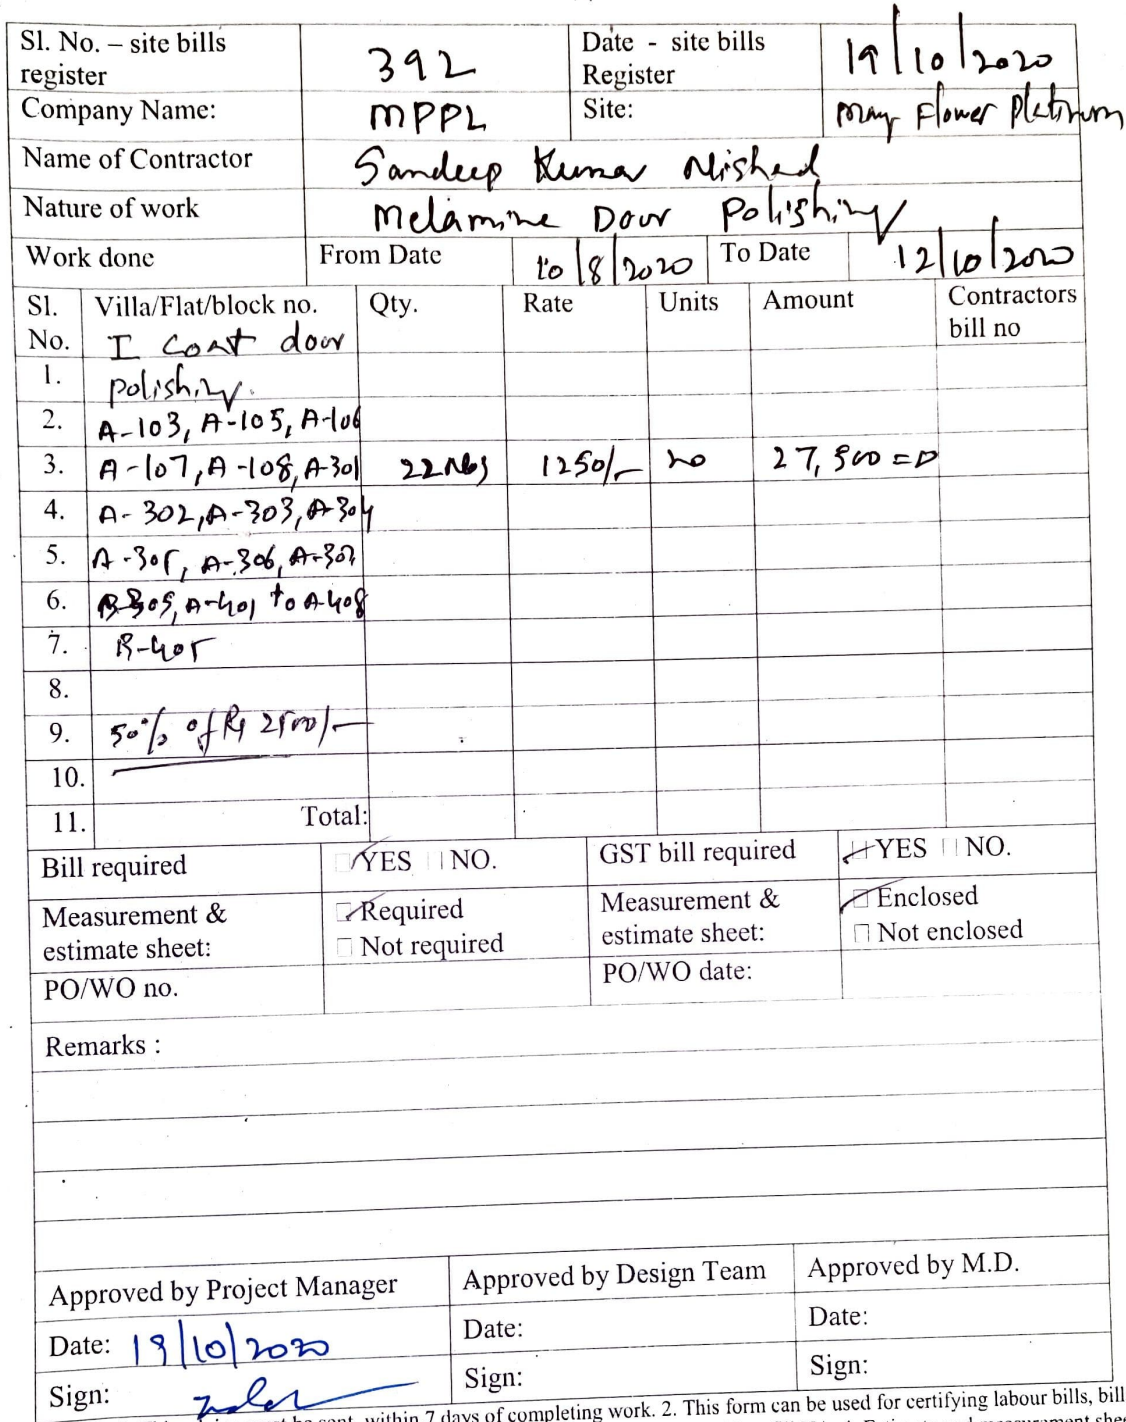 Sl. No. – site bills register 392 Date - site bills Register 19/10/2020
Company Name: MPPL Site: May Flower Platinum
Name of Contractor Sandeep Kumar Nishad
Nature of work Melamine Door Polishing
Work done From Date 10/8/2020 To Date 12/10/2020
Sl. No. Villa/Flat/block no. Qty. Rate Units Amount Contractors bill no
I coat door
1. polishing.
2. A-103, A-105, A-106
3. A-107, A-108, A-301 22 Nos 1250/- no 27,500=0
4. A-302, A-303, A-304
5. A-305, A-306, A-307
6. B-305, A-401 to A-408
7. B-405
8.
9. 50% of Rs 2500/-
10.
11. Total:
Bill required YES NO. GST bill required YES NO.
Measurement & estimate sheet: Required Measurement & estimate sheet: Enclosed
Not required Not enclosed
PO/WO no. PO/WO date:
Remarks :
Approved by Project Manager Approved by Design Team Approved by M.D.
Date: 19/10/2020 Date: Date:
Sign: Sign: Sign:
within 7 days of completing work. 2. This form can be used for certifying labour bills, bill